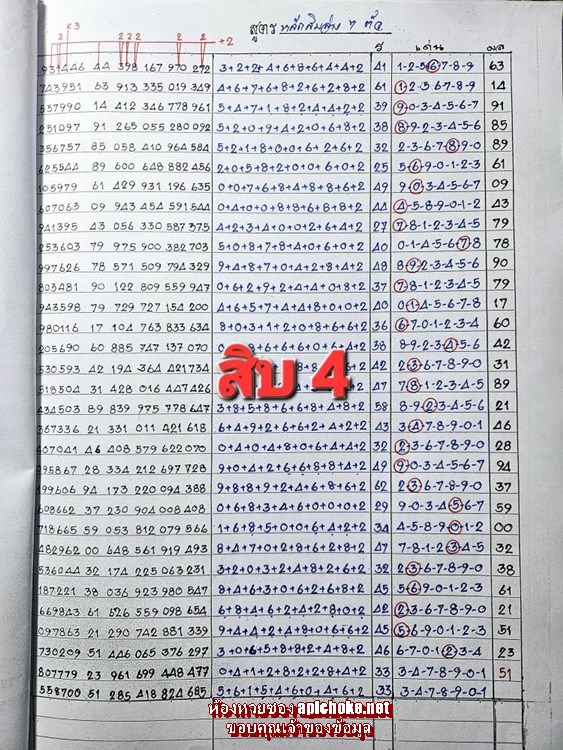 x3
2 2 2 2 2 2 +2
สูตร หลักสิบล่าง 7 ตัว
ร เด่น ผล
931446 44 398 167 970 272 3+2+2+4+6+8+6+4+4+2 41 1-2-5-6-7-8-9 63
743951 63 913 335 019 349 4+6+7+6+8+2+6+2+8+2 61 1-2-5-6-7-8-9 14
557990 14 412 346 778 961 5+4+7+1+8+2+4+4+2+2 39 9-0-3-4-5-6-7 91
251097 91 265 055 280 092 5+2+0+9+4+2+0+6+8+2 38 8-9-2-3-4-5-6 85
356757 85 058 410 964 584 5+2+1+8+0+0+6+2+6+2 32 2-3-6-7-8-9-0 89
625544 89 600 648 882 456 2+0+5+8+2+0+0+6+0+2 25 5-6-9-0-1-2-3 61
105979 61 429 931 196 635 0+0+7+6+8+4+8+8+6+2 49 9-0-3-4-5-6-7 09
607063 09 943 454 591 544 0+4+0+0+8+8+6+8+4+2 44 4-5-8-9-0-1-2 43
941395 43 056 330 587 375 4+2+3+4+0+0+2+6+4+2 27 7-8-1-2-3-4-5 79
253603 79 975 900 382 703 5+0+8+7+8+4+0+6+0+2 40 0-1-4-5-6-7-8 78
997626 78 571 509 794 329 9+4+8+7+0+4+2+8+4+2 48 8-9-2-3-4-5-6 90
803481 90 122 809 559 947 37 7-8-1-2-3-4-5 79
943598 79 729 727 154 200 4+6+5+7+4+4+8+0+0+2 40 0-1-4-5-6-7-8 17
980116 17 104 763 833 634 8+0+3+1+2+0+8+6+6+2 36 6-7-0-1-2-3-4 60
205690 60 885 747 137 070 38 8-9-2-3-4-5-6 42
530593 42 194 364 421 734 42 2-3-6-7-8-9-0 31
518504 31 428 016 447 426 47 7-8-1-2-3-4-5 89
434503 89 839 975 778 647 3+8+5+8+6+6+8+8+4+2 58 8-9-2-3-4-5-6 21
367336 21 331 011 421 618 6+4+9+2+6+6+2+4+2+2 43 3-4-7-8-9-0-1 46
407041 46 408 579 622 070 0+4+0+4+8+0+6+4+4+2 32 2-3-6-7-8-9-0 28
295867 28 334 212 697 728 9+0+4+2+6+6+8+8+4+2 49 9-0-3-4-5-6-7 94
199606 94 173 220 094 388 9+8+8+9+2+6+4+6+8+2 62 2-3-6-7-8-9-0 37
608662 37 230 904 008 408 0+6+8+3+4+6+0+0+0+2 29 9-0-3-4-5-6-7 59
718665 59 053 812 079 566 1+6+8+5+0+0+6+4+2+2 34 4-5-8-9-0-1-2 00
482962 00 648 561 919 493 8+4+7+0+2+8+6+2+8+2 47 7-8-1-2-3-4-5 32
536044 32 174 225 063 231 3+2+0+3+2+4+4+6+6+2 32 2-3-6-7-8-9-0 38
187221 38 036 923 980 547 8+4+6+3+0+6+2+6+8+2 45 5-6-9-0-1-2-3 61
669843 61 626 559 098 654 6+8+4+6+2+4+2+8+0+2 42 2-3-6-7-8-9-0 21
097863 21 290 742 881 339 9+4+4+2+4+8+0+6+6+2 45 5-6-9-0-1-2-3 51
730209 51 446 065 376 297 3+6+6+5+8+8+0+2+6+2 46 6-7-0-1-2-3-4 23
807779 23 961 699 448 477 0+4+1+2+8+2+2+8+4+2 33 3-4-7-8-9-0-1 51
558700 51 285 418 824 685 5+6+1+5+4+6+0+4+6+2 33 3-4-7-8-9-0-1
สิบ 4
ห้องหวยซอง apichoke.net
ขอบคุณเจ้าของข้อมูล